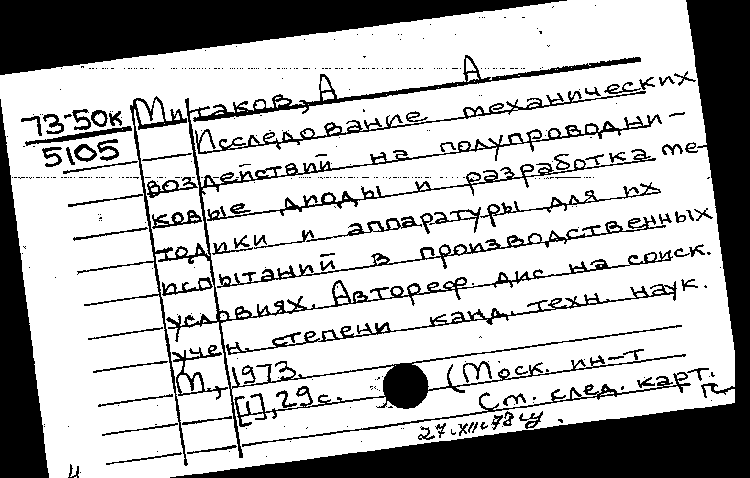 73-50к Митаков, А А
5105 Исследование механических
воздействий на полупроводни-
ковые диоды и разработка ме-
тодики и аппаратуры для их
испытаний в производственных
условиях. Автореф. дис на соиск.
учен. степени канд. техн. наук.
М., 1973.
[1], 29с. (Моск. ин-т
См. след. карт.
27.XII.73